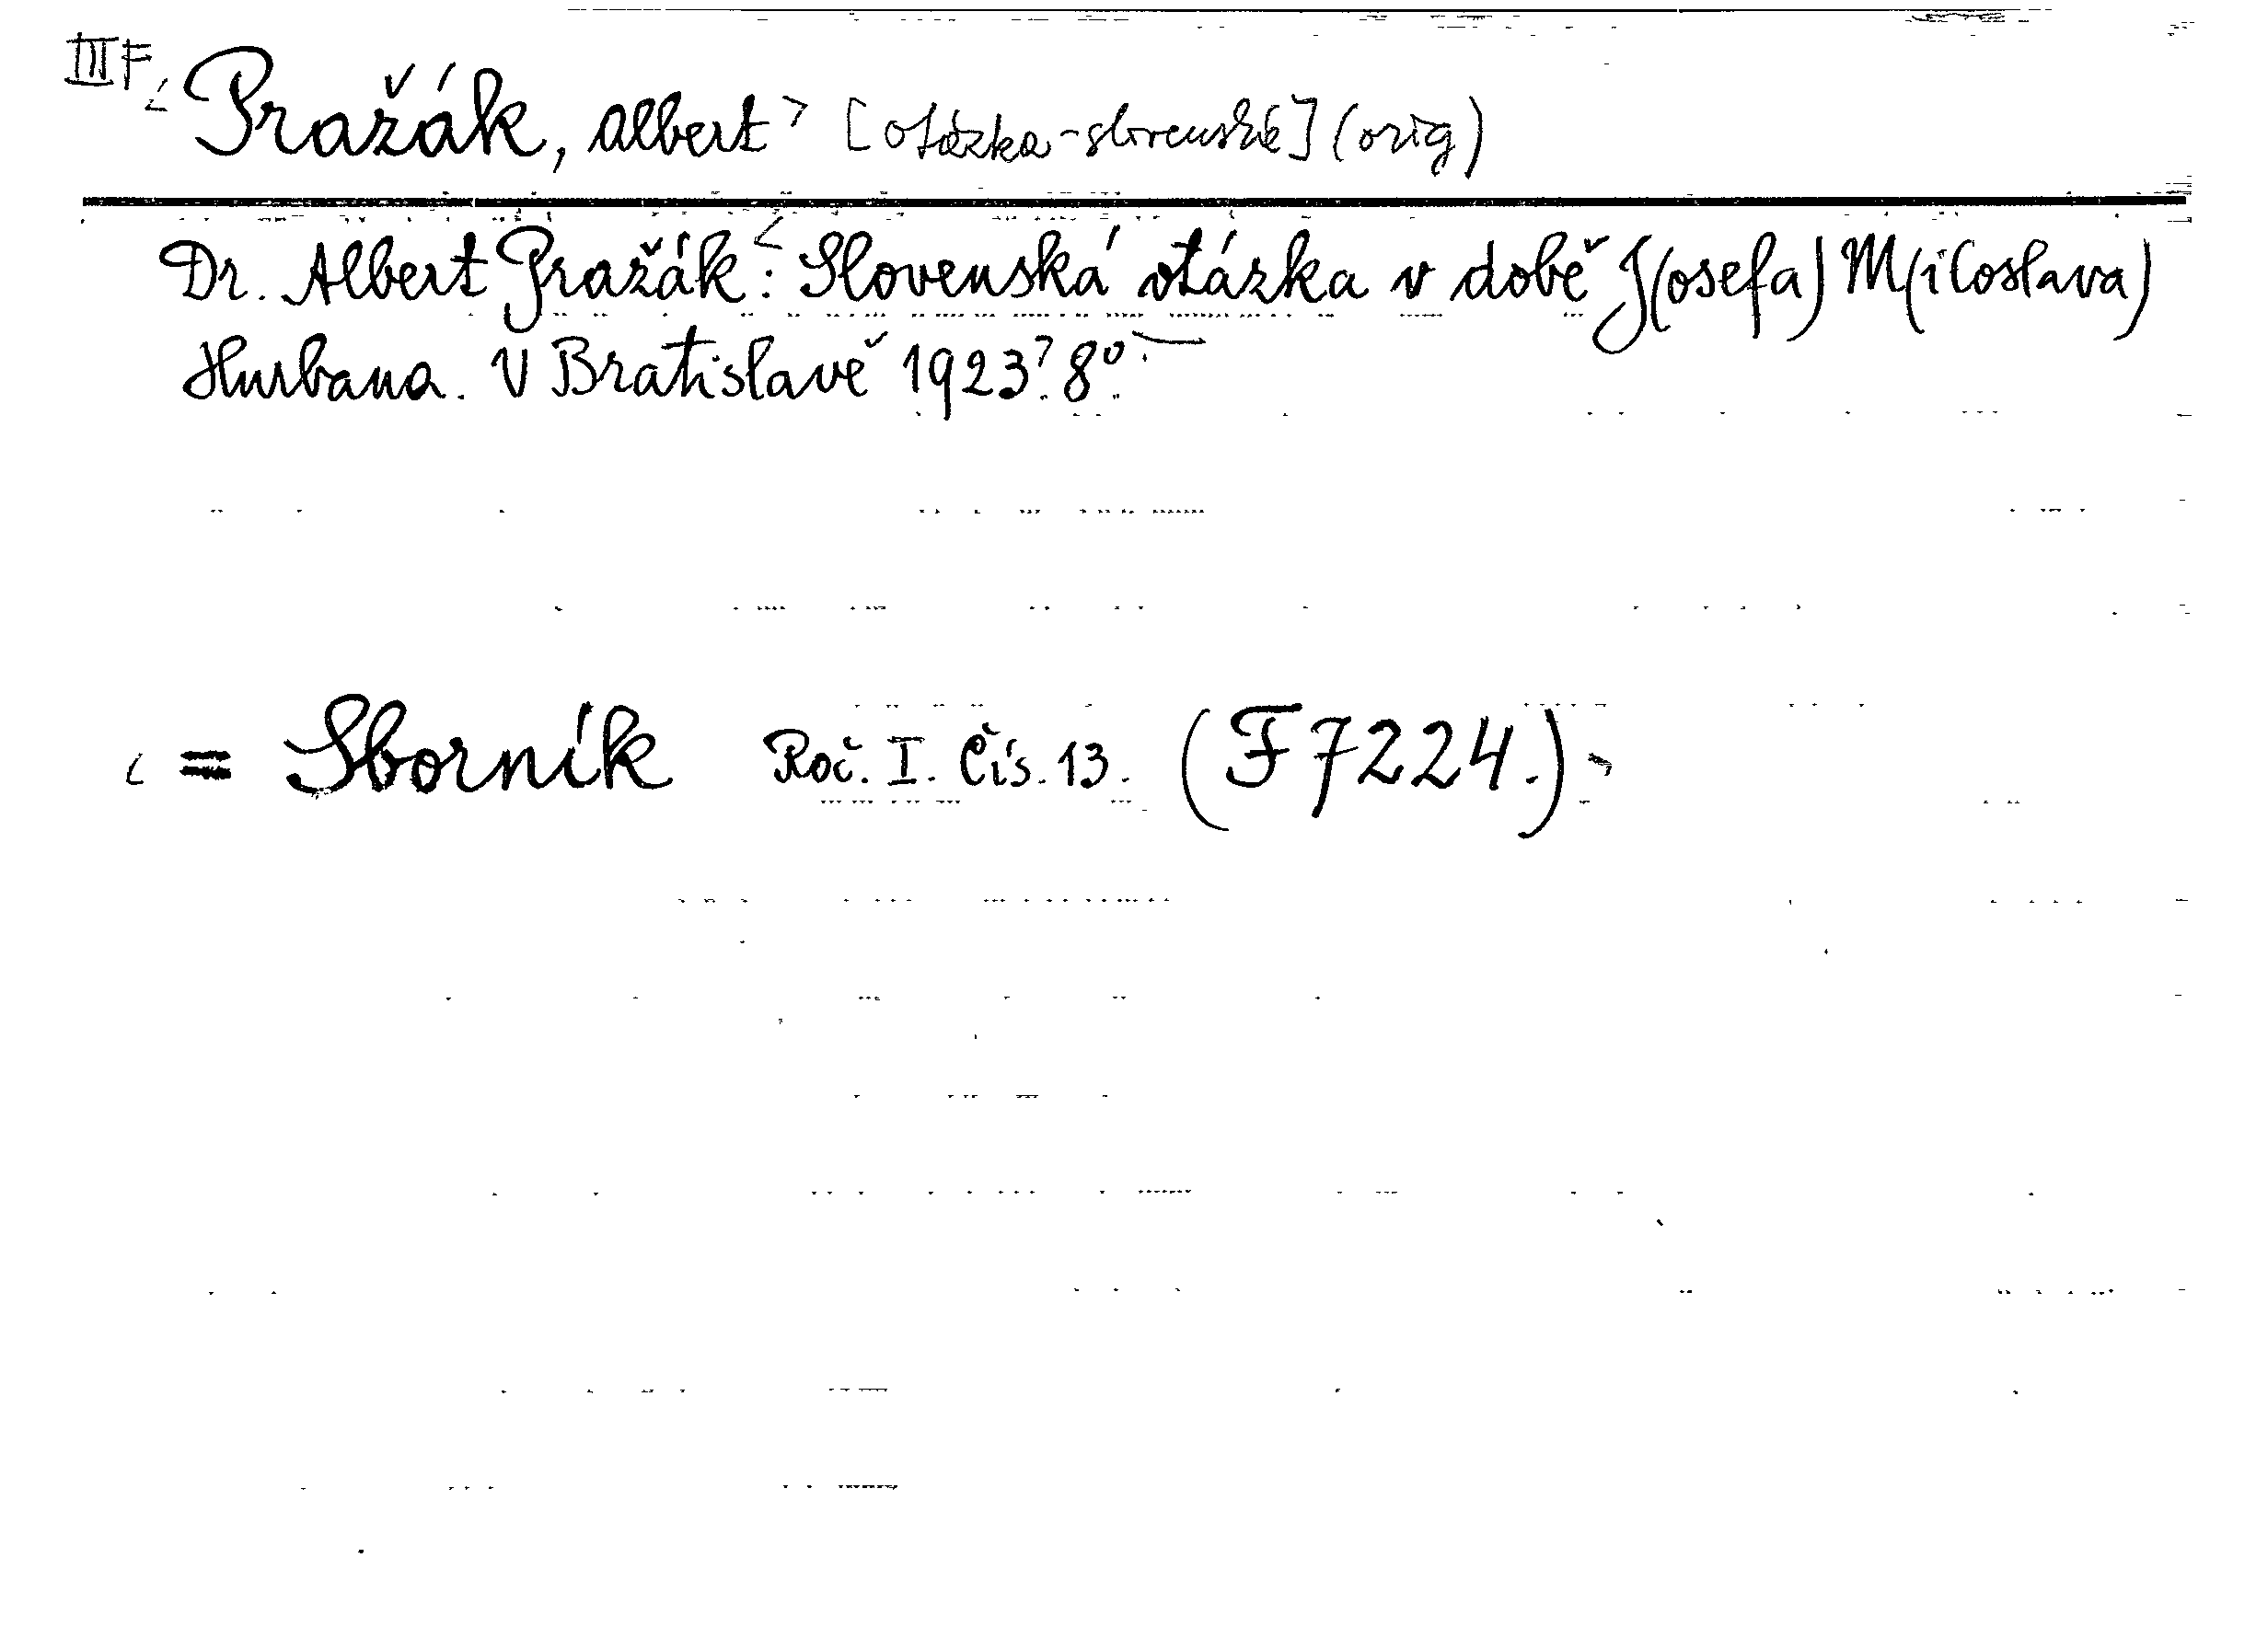 III F
<Pražák, Albert> [otázka-slovenská] (orig)
Dr. Albert Pražák: <Slovenská otázka v době J(osefa) M(iloslava)
Hurbana. V Bratislavě 1923? 8°.
<= Sborník Roč. I. Čís. 13. (F 7224.)>